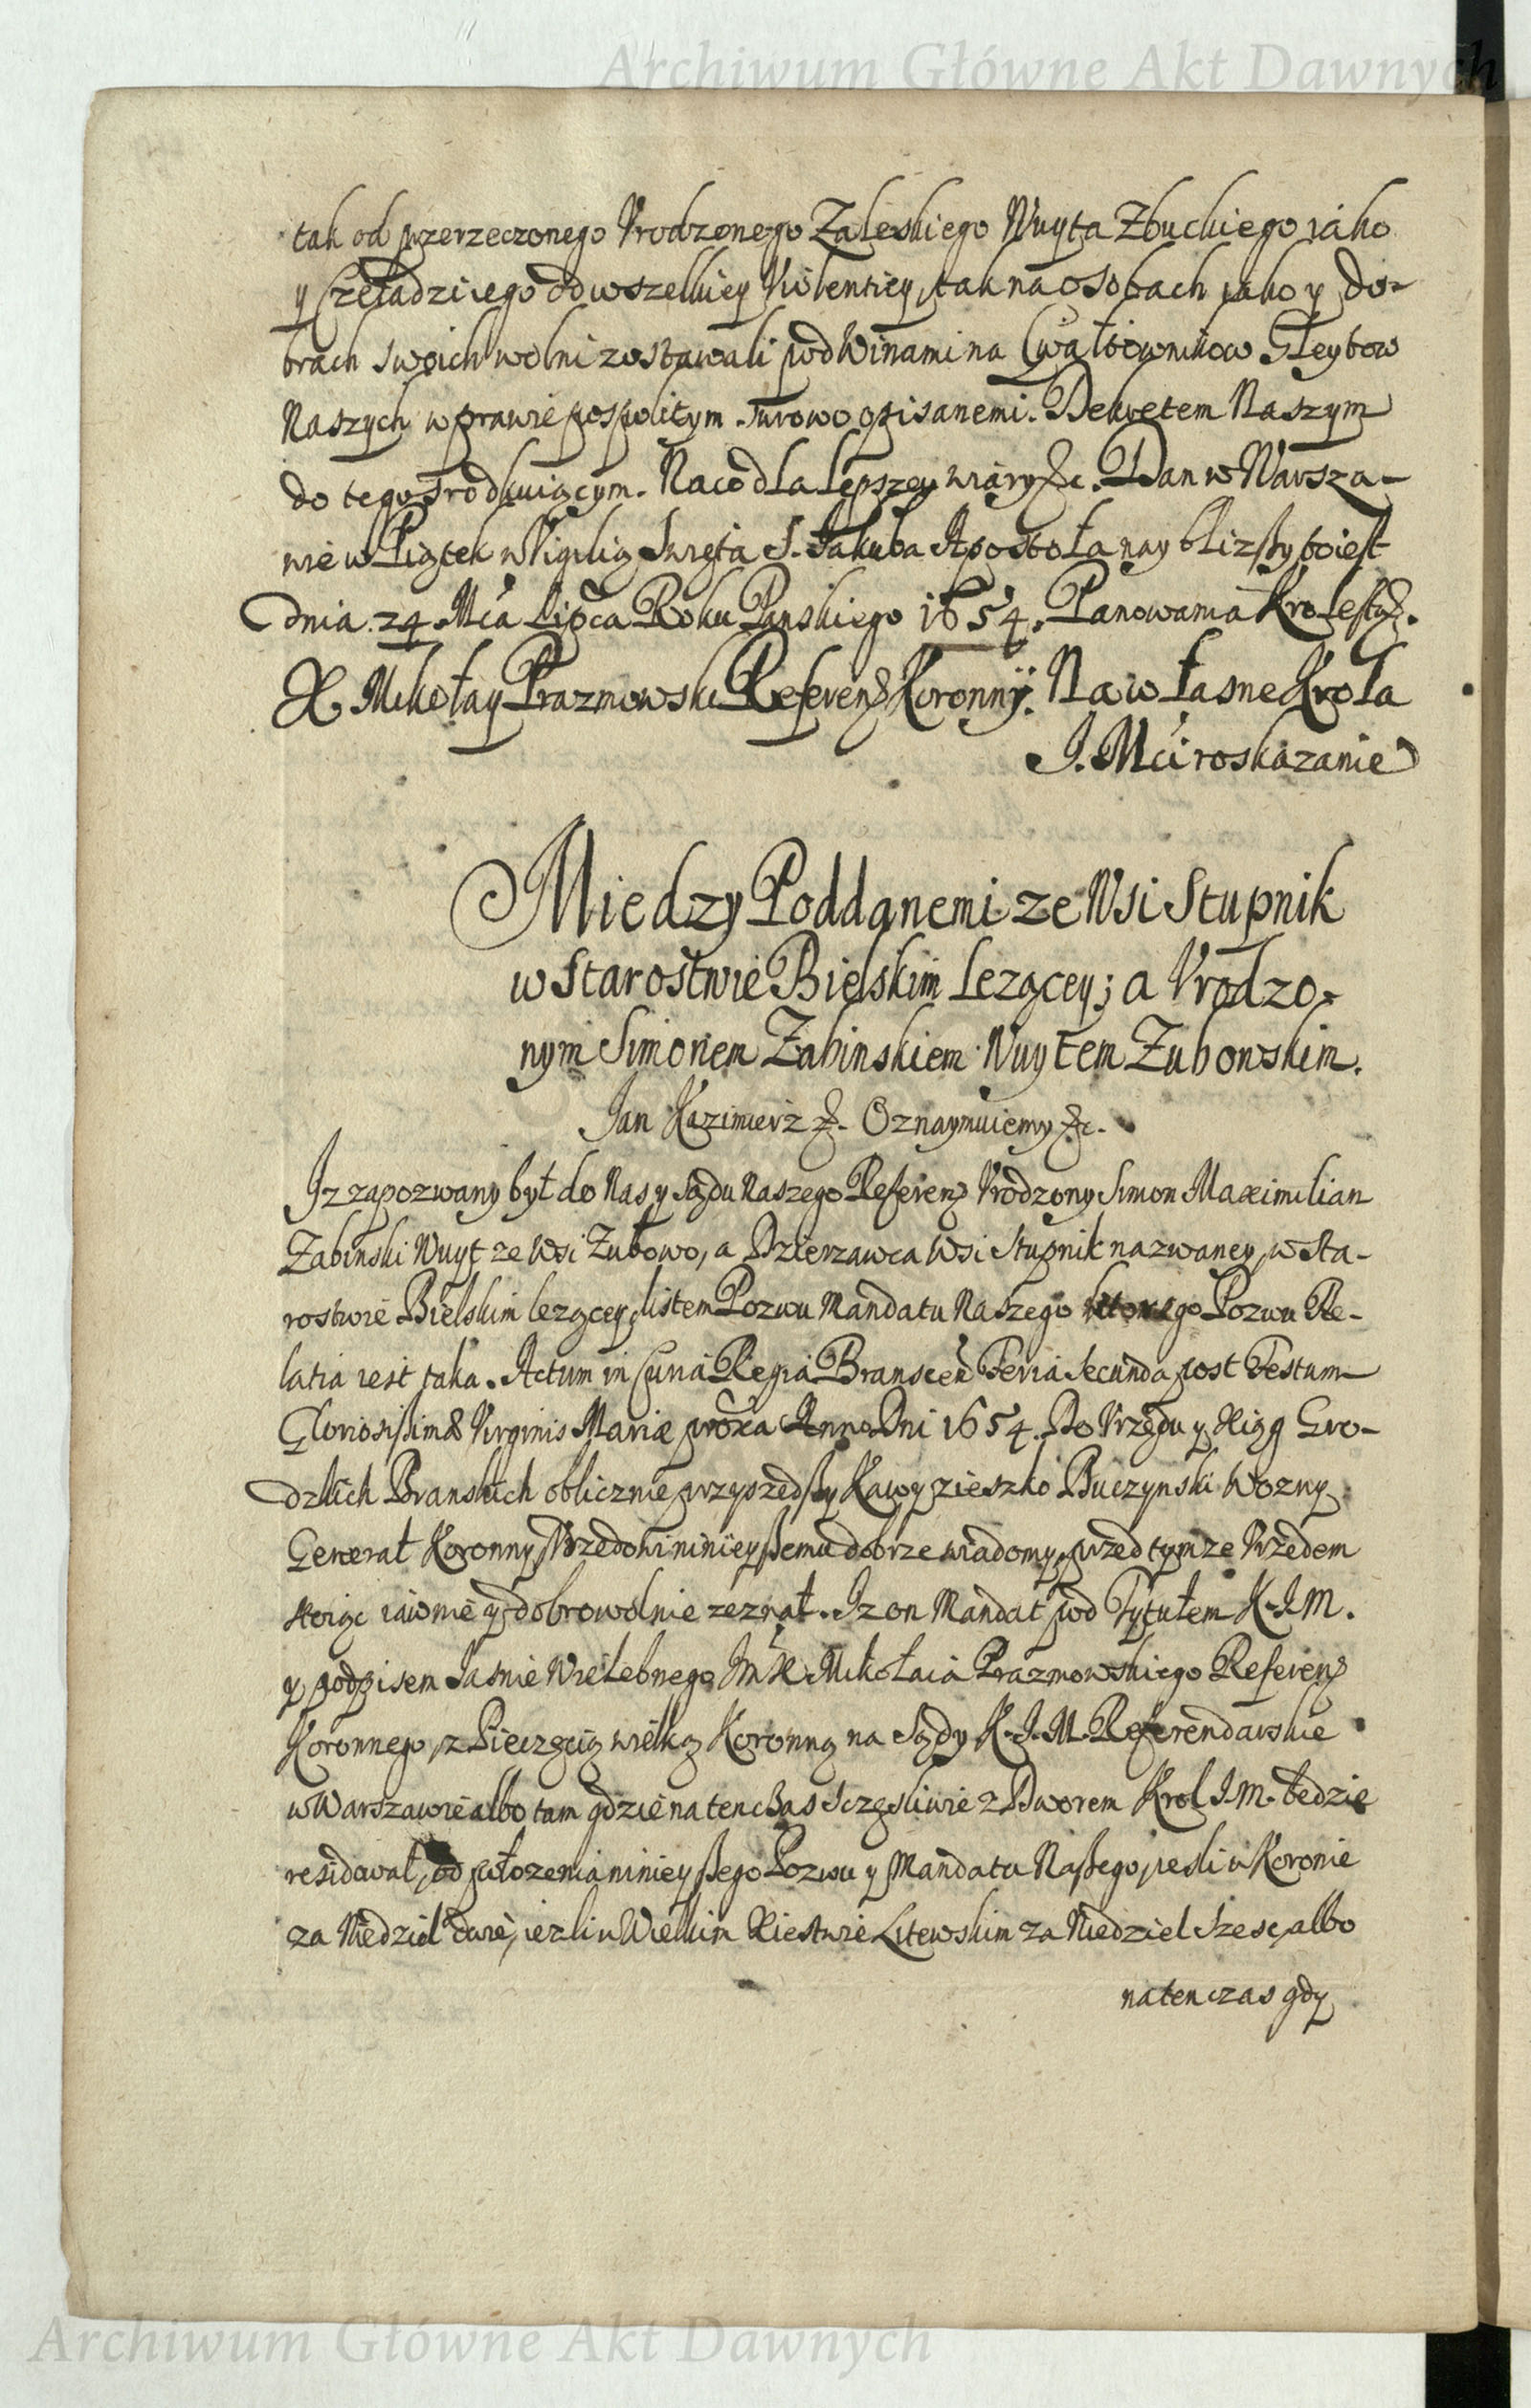 Archiwum Główne Akt Dawnych
tak od przerzeczonego Vrodzonego Zaleskiego Wuyta Zbuckiego iáko
y Czeladzi iego od wszelkiey Violentiey, tak na osobach iako y do-
brach swoich wolni zostawali pod Winami na Gwałtownikow Gleytow
Naszych w prawie pospolitym surowo opisanemi. Dekretem Naszym
do tego srodkuiącym. Na co dla lepszey wiáry &c. Dan w Warsza-
wie w Piątek w Wigilią Swięta S. Iakuba Apostoła nay blizszy to iest
dnia 24 Mca Lipca Roku Panskiego 1654. Panowania Krolestw &.
X. Mikołay Prazmowski Referen. Koronny. Na własne Krola
J. Mci roskazanie
Miedzy Poddanemi ze Wsi Stupnik
w Starostwie Bielskim Lezącey; a Vrodzo-
nym Simonem Zabinskiem Wuytem Zubowskim.
Jan Kazimierz &. Oznaymuiemy &c.
Iz zapozwany był do Nas y Sądu Naszego Referen. Vrodzony Simon Maximilian
Zabinski Wuyt ze Wsi Zubowo, a Dzierzawca Wsi Stupnik nazwaney, w Sta-
rostwie Bielskim lezącey, listem Pozwu Mandatu Naszego ktorego Pozwu Re-
latia iest taka. Actum in Curia Regia Branscen Feria Secunda post Festum
Gloriosissimæ Virginis Mariæ proxa Anno Dni 1654. Do Vrzędu y Xiąg Gro-
dzkich Branskich oblicznie przyszedszy Buczynski Wozny
Generał Koronny Vrzędowi ninieyszemu dobrze wiadomy, przed tymze Vrzedem
stoiąc iawnie y dobrowolnie zeznał. Iz on Mandat pod Tytułem K.I.M.
y podpisem Iasnie Wielebnego Im X. Mikołaia Prazmowskiego Referen.
Koronnego, z Pieczęcią wielką Koronną na Sądy K.J.M. Referendarskie
w Warszawie albo tam gdzie na ten czas szczęsliwie z Dworem Krol I.M. będzie
residował, od położenia ninieyszego Pozwu y Mandatu Naszego, iesli w Koronie
za Niedziel dwie, iezli w Wielkim Xiestwie Litewskim za Niedziel szesc, albo
na ten czas gdy
Archiwum Główne Akt Dawnych